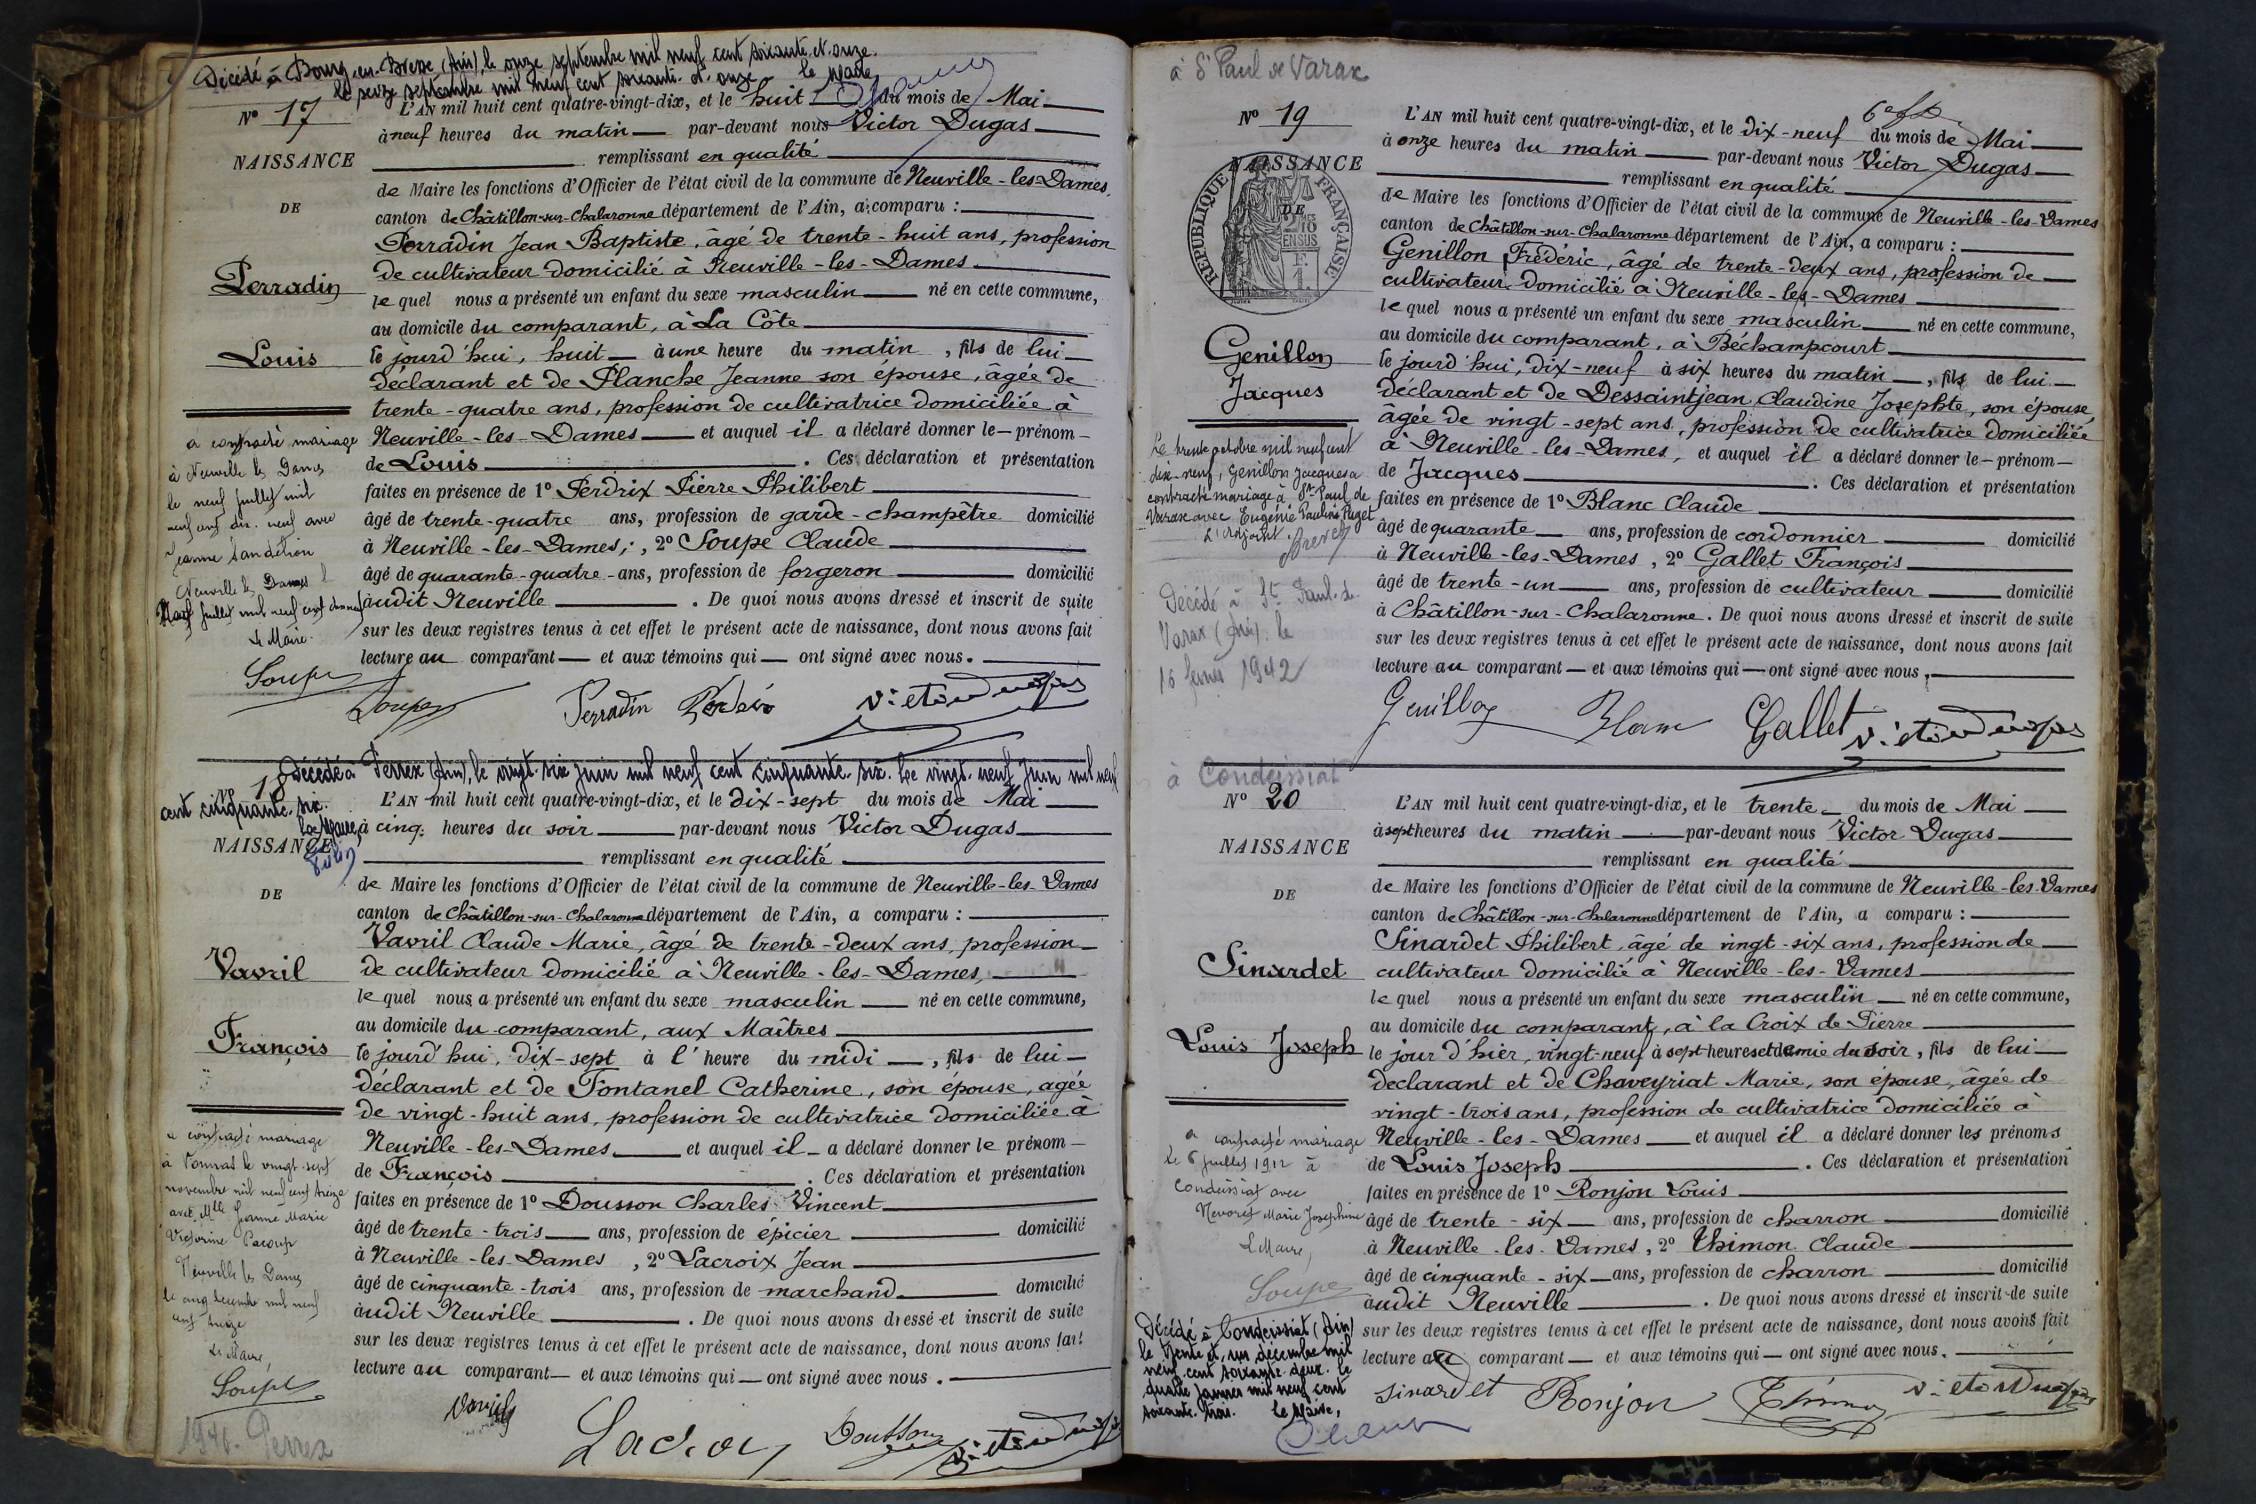 Décédé à Bourg-en-Bresse (Ain), le onze septembre mil neuf cent soixante et onze.
le seize septembre mil neuf cent soixante et onze le Maire
N° 17
L'AN mil huit cent quatre-vingt-dix, et le huit du mois de Mai
à neuf heures du matin par-devant nous Victor Dugas
NAISSANCE
remplissant en qualité
de Maire les fonctions d'Officier de l'état civil de la commune de Neuville-les-Dames,
DE
canton de Châtillon-sur-Chalaronne département de l'Ain, a comparu :
Perradin Jean Baptiste, âgé de trente-huit ans, profession
de cultivateur domicilié à Neuville-les-Dames
Perradin
le quel nous a présenté un enfant du sexe masculin né en cette commune,
au domicile du comparant, à La Côte
Louis
le jourd'hui, huit à une heure du matin, fils de lui
déclarant et de Planche Jeanne son épouse, âgée de
trente-quatre ans, profession de cultivatrice domiciliée à
Neuville-les-Dames et auquel il a déclaré donner le prénom
de Louis. Ces déclaration et présentation
faites en présence de 1° Perdrix Pierre Philibert
âgé de trente-quatre ans, profession de garde-champêtre domicilié
à Neuville-les-Dames;, 2° Soupe Claude
âgé de quarante-quatre ans, profession de forgeron domicilié
audit Neuville. De quoi nous avons dressé et inscrit de suite
sur les deux registres tenus à cet effet le présent acte de naissance, dont nous avons fait
lecture au comparant et aux témoins qui ont signé avec nous.
a contracté mariage
à Neuville les Dames
le neuf juillet mil
neuf cent dix neuf avec
Jeanne
Neuville les Dames le
neuf juillet mil neuf cent
Le Maire
Soupe
Soupe Perradin Perdrix Victor Dugas
N° 18
Décédé à Perrex (Ain), le vingt-six juin mil neuf cent cinquante-six. Le vingt-neuf Juin mil neuf
cent cinquante-six.
Le Maire,
L'AN mil huit cent quatre-vingt-dix, et le dix-sept du mois de Mai
à cinq heures du soir par-devant nous Victor Dugas
NAISSANCE
remplissant en qualité
DE
de Maire les fonctions d'Officier de l'état civil de la commune de Neuville-les-Dames
canton de Châtillon-sur-Chalaronne département de l'Ain, a comparu :
Vavril Claude Marie, âgé de trente-deux ans, profession
Vavril
de cultivateur domicilié à Neuville-les-Dames,
le quel nous a présenté un enfant du sexe masculin né en cette commune,
au domicile du comparant, aux Maîtres
François
le jourd'hui, dix-sept à l'heure du midi, fils de lui
déclarant et de Fontanel Catherine, son épouse, agée
de vingt-huit ans, profession de cultivatrice domiciliée à
Neuville-les-Dames et auquel il a déclaré donner le prénom
de François. Ces déclaration et présentation
faites en présence de 1° Dousson Charles Vincent
âgé de trente-trois ans, profession de épicier domicilié
à Neuville-les-Dames, 2° Lacroix Jean
âgé de cinquante-trois ans, profession de marchand domicilié
audit Neuville. De quoi nous avons dressé et inscrit de suite
sur les deux registres tenus à cet effet le présent acte de naissance, dont nous avons fait
lecture au comparant et aux témoins qui ont signé avec nous.
a contracté mariage
à Vonnas le vingt-sept
novembre mil neuf cent treize
avec Mlle Jeanne Marie
Victorine Pacoup
Neuville les Dames
le cinq décembre mil neuf
cent treize
Le Maire,
Soupe
1946. Perrex
Vavril Lacroix Dousson Victor Dugas
à St Paul de Varax
N° 19
L'AN mil huit cent quatre-vingt-dix, et le dix-neuf du mois de Mai
à onze heures du matin par-devant nous Victor Dugas
NAISSANCE
remplissant en qualité
DE
RÉPUBLIQUE FRANÇAISE
2/10 EN SUS
F. 1.
de Maire les fonctions d'Officier de l'état civil de la commune de Neuville-les-Dames
canton de Châtillon-sur-Chalaronne département de l'Ain, a comparu :
Genillon Frédéric, âgé de trente-deux ans, profession de
cultivateur domicilié à Neuville-les-Dames
le quel nous a présenté un enfant du sexe masculin né en cette commune,
au domicile du comparant, à Béchampcourt
Genillon
Jacques
le jourd'hui, dix-neuf à six heures du matin, fils de lui
déclarant et de Dessaintjean Claudine Josephte, son épouse,
âgée de vingt-sept ans, profession de cultivatrice domiciliée
à Neuville-les-Dames, et auquel il a déclaré donner le prénom
de Jacques. Ces déclaration et présentation
faites en présence de 1° Blanc Claude
âgé de quarante ans, profession de cordonnier domicilié
à Neuville-les-Dames, 2° Gallet François
âgé de trente-un ans, profession de cultivateur domicilié
à Châtillon-sur-Chalaronne. De quoi nous avons dressé et inscrit de suite
sur les deux registres tenus à cet effet le présent acte de naissance, dont nous avons fait
lecture au comparant et aux témoins qui ont signé avec nous,
Le trente octobre mil neuf cent
dix-neuf, Genillon Jacques a
contracté mariage à St-Paul de
Varax avec Eugénie Pauline Puget
L'Adjoint,
Décédé à St Paul de
Varax (Ain). le
16 février 1942
Genillon Blanc Gallet Victor Dugas
à Condeissiat
N° 20
L'AN mil huit cent quatre-vingt-dix, et le trente du mois de Mai
à sept heures du matin par-devant nous Victor Dugas
NAISSANCE
remplissant en qualité
DE
de Maire les fonctions d'Officier de l'état civil de la commune de Neuville-les-Dames
canton de Châtillon-sur-Chalaronne département de l'Ain, a comparu :
Sinardet Philibert, âgé de vingt-six ans, profession de
Sinardet
cultivateur domicilié à Neuville-les-Dames
le quel nous a présenté un enfant du sexe masculin né en cette commune,
au domicile du comparant, à la Croix de Pierre
Louis Joseph
le jour d'hier, vingt-neuf à sept heures et demie du soir, fils de lui
declarant et de Chaveyriat Marie, son épouse, âgée de
vingt-trois ans, profession de cultivatrice domiciliée à
Neuville-les-Dames et auquel il a déclaré donner les prénoms
de Louis Joseph. Ces déclaration et présentation
faites en présence de 1° Ronjon Louis
âgé de trente-six ans, profession de charron domicilié
à Neuville-les-Dames, 2° Thimon Claude
âgé de cinquante-six ans, profession de charron domicilié
audit Neuville. De quoi nous avons dressé et inscrit de suite
sur les deux registres tenus à cet effet le présent acte de naissance, dont nous avons fait
lecture au comparant et aux témoins qui ont signé avec nous.
a contracté mariage
le 6 juillet 1912 à
Condeissiat avec
Nevoret Marie Josephine
Le Maire,
Soupe
Décédé à Condeissiat (Ain)
le trente et un décembre mil
neuf cent soixante deux. Le
quatre janvier mil neuf cent
soixante-trois. Le Maire,
Sinardet Ronjon Thimon Victor Dugas